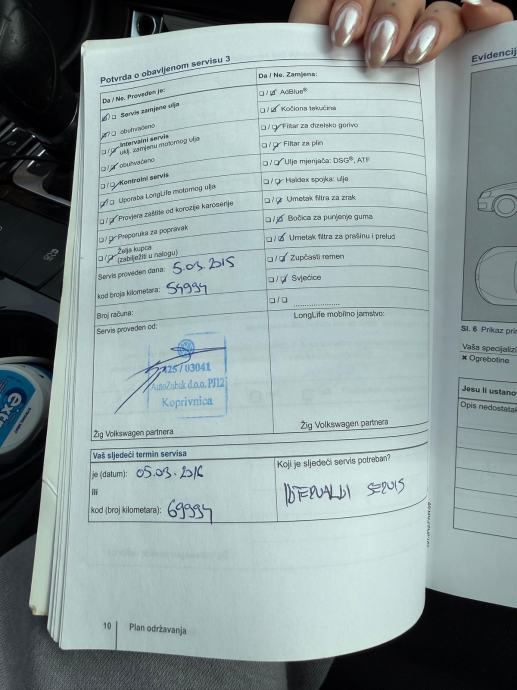 Potvrda o obavljenom servisu 3
Da / Ne. Proveden je:
Servis zamjene ulja
obuhvaćeno
Intervalni servis
uklj. zamjenu motornog ulja
obuhvaćeno
Kontrolni servis
Uporaba LongLife motornog ulja
Provjera zaštite od korozije karoserije
Preporuka za popravak
Želja kupca
(zabilježiti u nalogu)
Servis proveden dana: 5.03.2015
kod broja kilometara: 54994
Broj računa:
Servis proveden od:
125 / 03041
AutoZubak d.o.o. PJ12
Koprivnica
Žig Volkswagen partnera
Da / Ne. Zamjena:
AdBlue®
Kočiona tekućina
Filtar za dizelsko gorivo
Filtar za plin
Ulje mjenjača: DSG®, ATF
Haldex spojka: ulje
Umetak filtra za zrak
Bočica za punjenje guma
Umetak filtra za prašinu i pelud
Zupčasti remen
Svjećice
LongLife mobilno jamstvo:
Žig Volkswagen partnera
Vaš sljedeći termin servisa
je (datum): 05.03.2016
ili
kod (broj kilometara): 69994
Koji je sljedeći servis potreban?
INTERVALNI SERVIS
10 Plan održavanja
Evidencij
Sl. 6 Prikaz prir
Vaša specijalizi
✖ Ogrebotine
Jesu li ustanov
Opis nedostatak